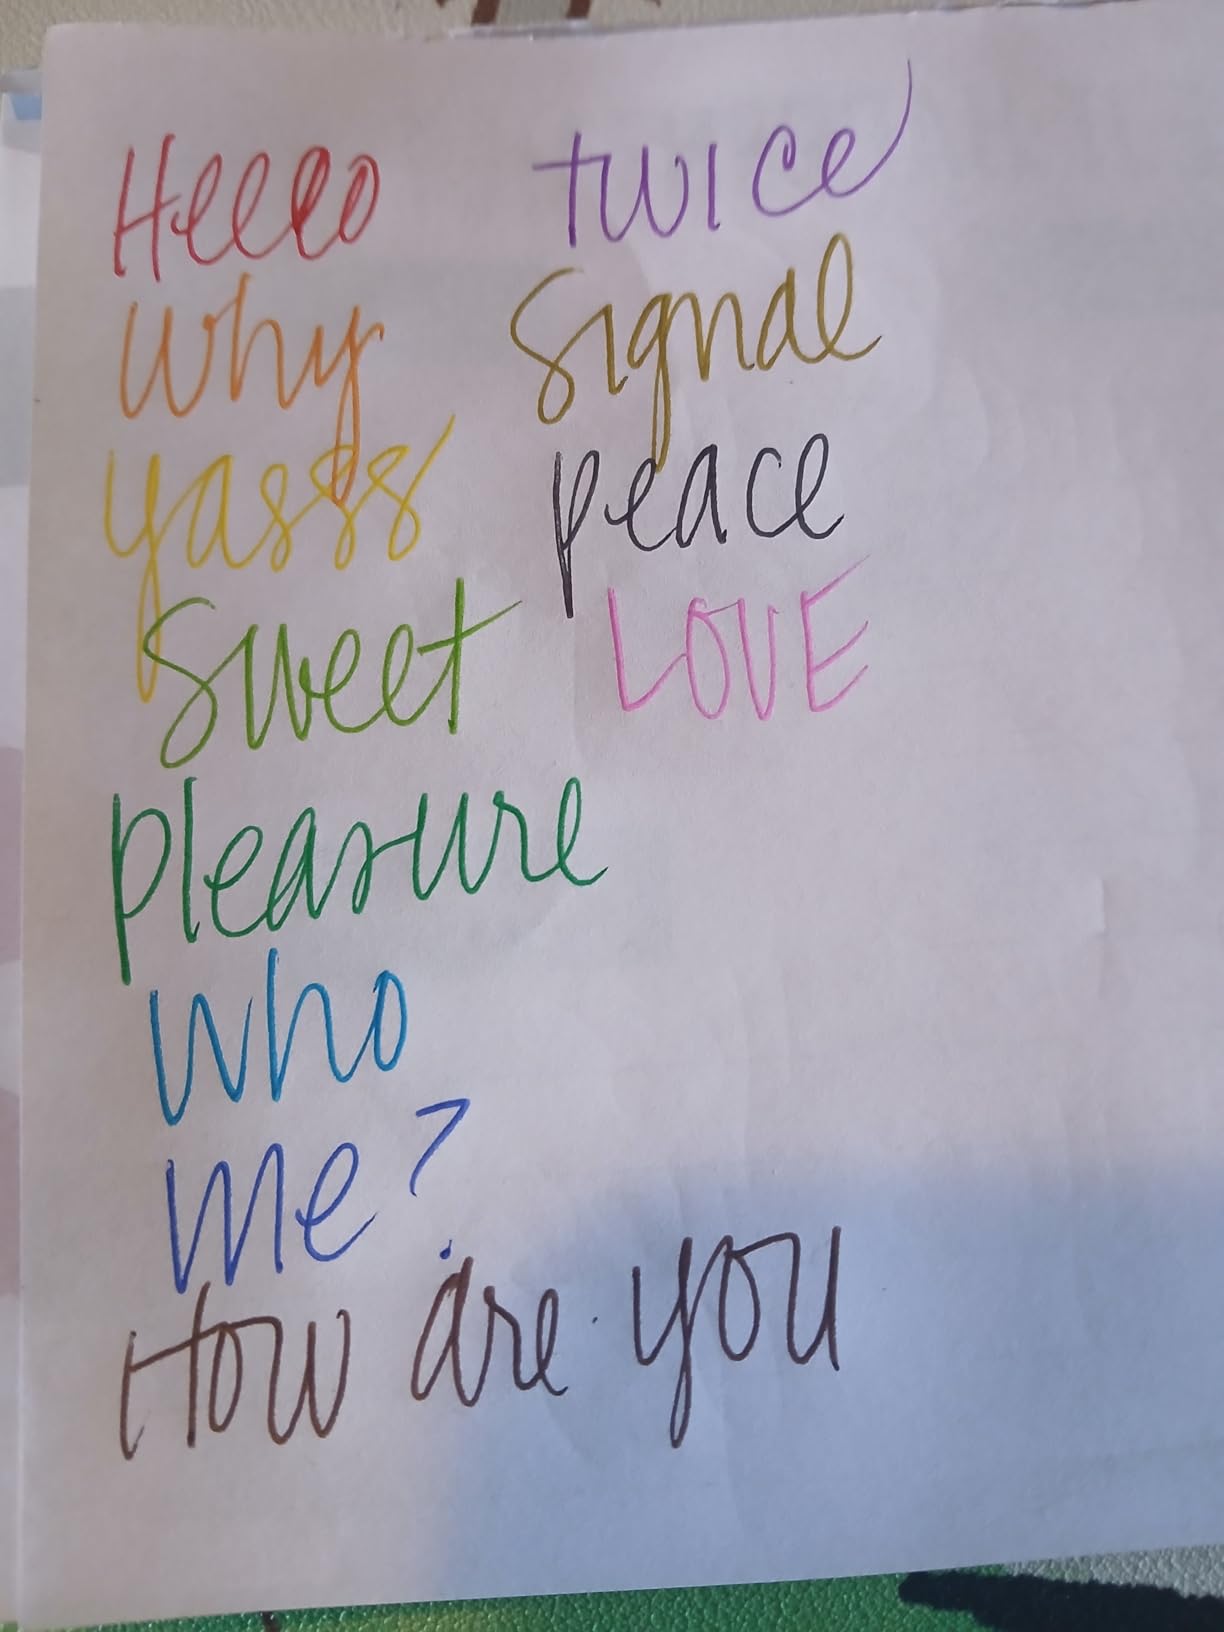 Hello
why
yasss
Sweet
pleasure
who
me?
How are you
twice
Signal
peace
LOVE